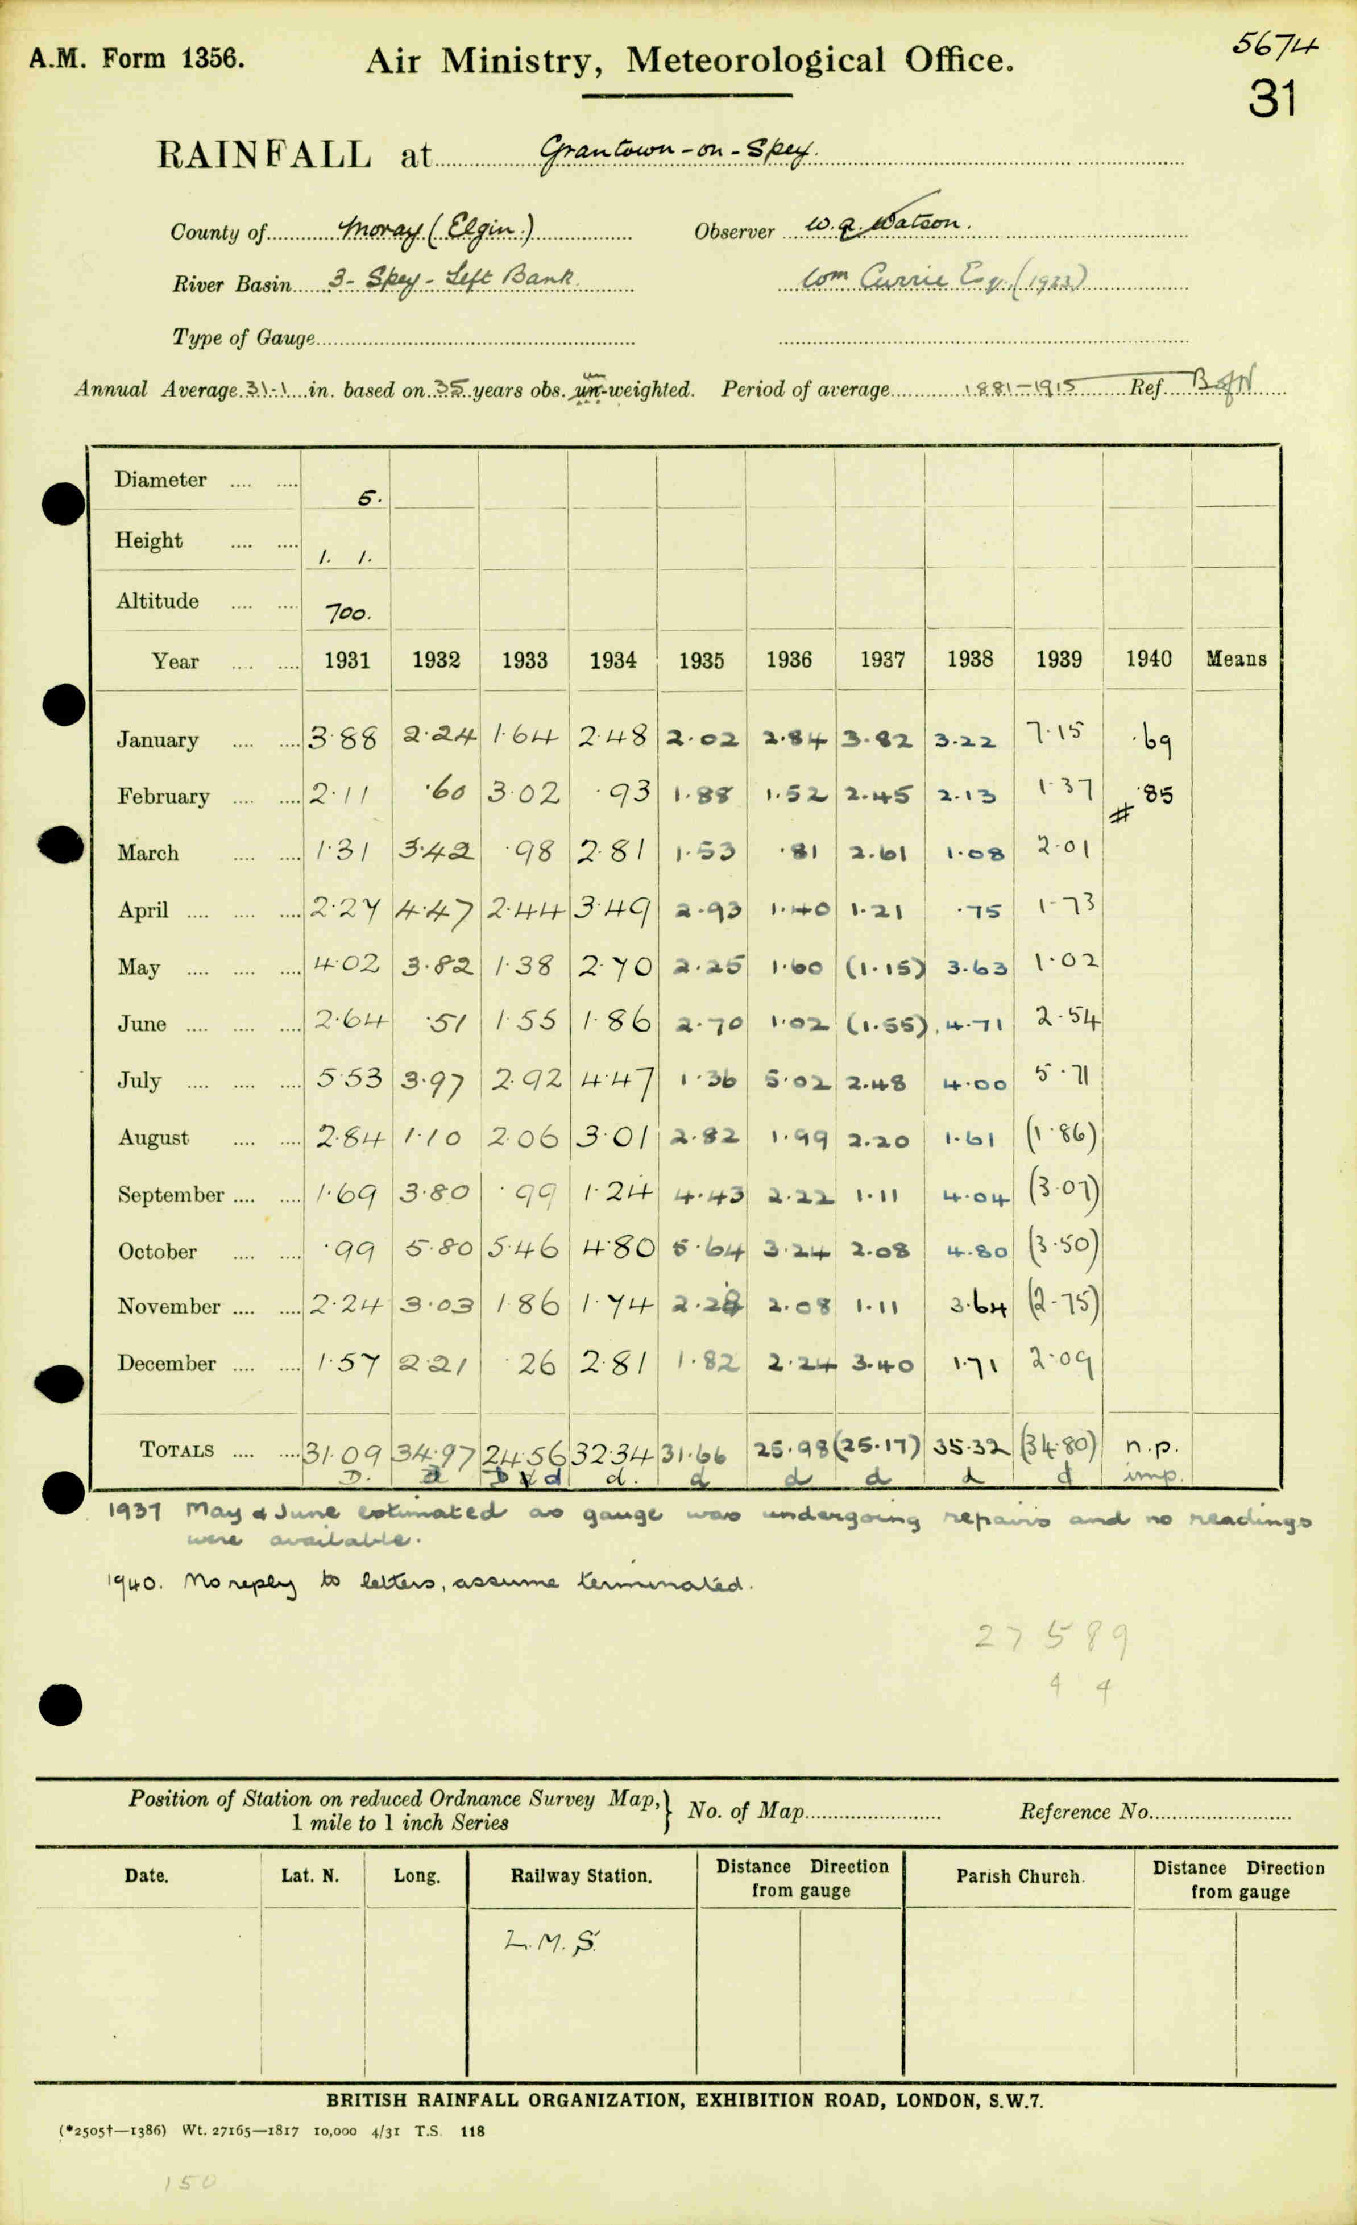 A.M. Form 1356. Air Ministry, Meteorological Office. 5674
31
RAINFALL at Grantown-on-Spey.
County of Moray (Elgin.) Observer W. Q. Watson.
River Basin 3- Spey - Left Bank. Wm Currie Esq. (1933)
Type of Gauge
Annual Average 31.1 in. based on 35 years obs. un-weighted. Period of average 1881-1915 Ref.
Diameter 5.
Height 1. 1.
Altitude 700.
Year 1931 1932 1933 1934 1935 1936 1937 1938 1939 1940 Means
January 3.88 2.24 1.64 2.48 2.02 2.84 3.82 3.22 7.15 .69
February 2.11 .60 3.02 .93 1.88 1.52 2.45 2.13 1.37 # .85
March 1.31 3.42 .98 2.81 1.53 .81 2.61 1.08 2.01
April 2.27 4.47 2.44 3.49 2.93 1.40 1.21 .75 1.73
May 4.02 3.82 1.38 2.70 2.25 1.60 (1.15) 3.63 1.02
June 2.64 .51 1.55 1.86 2.70 1.02 (1.55) 4.71 2.54
July 5.53 3.97 2.92 4.47 1.36 5.02 2.48 4.00 5.71
August 2.84 1.10 2.06 3.01 2.82 1.99 2.20 1.61 (1.86)
September 1.69 3.80 .99 1.24 4.43 2.22 1.11 4.04 (3.07)
October .99 5.80 5.46 4.80 5.64 3.24 2.08 4.80 (3.50)
November 2.24 3.03 1.86 1.74 2.28 2.08 1.11 3.64 (2.75)
December 1.57 2.21 .26 2.81 1.82 2.24 3.40 1.71 2.09
TOTALS 31.09 34.97 24.56 32.34 31.66 25.98 (25.17) 35.32 (34.80) n.p.
D. d D d d. d d d d d imp.
1937 May & June estimated as gauge was undergoing repairs and no readings
were available.
1940. No reply to letters, assume terminated.
27589
4 4
Position of Station on reduced Ordnance Survey Map, 1 mile to 1 inch Series } No. of Map Reference No.
Date. Lat. N. Long. Railway Station. Distance Direction from gauge Parish Church. Distance Direction from gauge
L.M.S.
BRITISH RAINFALL ORGANIZATION, EXHIBITION ROAD, LONDON, S.W.7.
(*2505†—1386) Wt. 27165—1817 10,000 4/31 T.S. 118
150